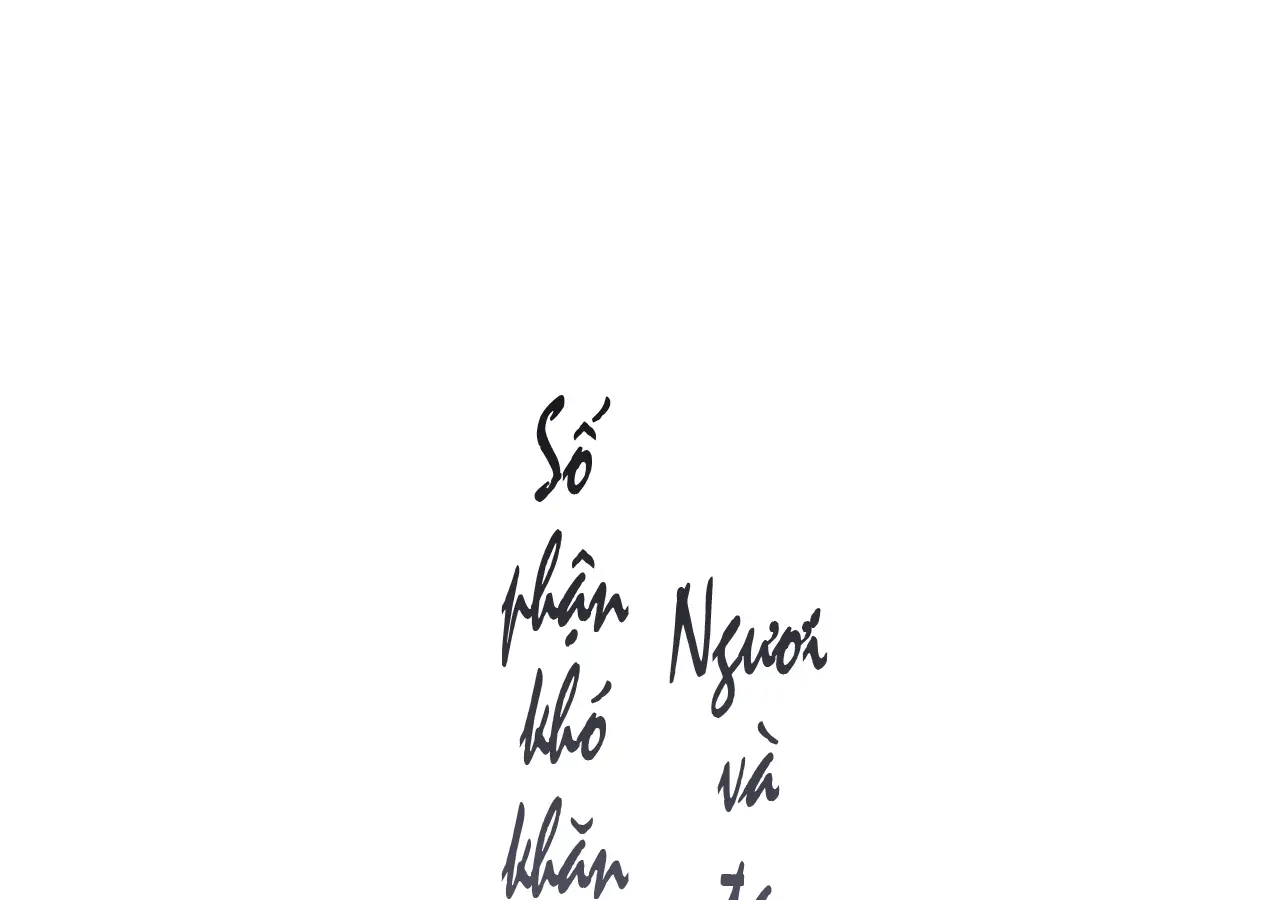 Số
phận
khó
khăn
Ngươi
và